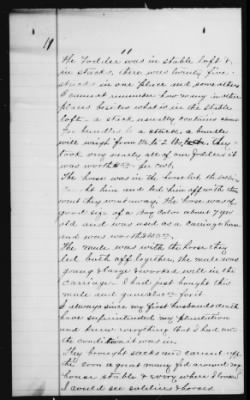 11
11
The Fodder was in stable loft &
in stacks, there were twenty five
stacks in one place and some others
I cannot remember how many in other
places besides what is in the stable
loft. a stack usually contains some
bundles to a stack, a bundle
will weigh from 1½ to 2 lbs they
took very nearly all of my fodder it
was worth per cwt
The horse was in the horse lot, the soldier
him and led him off with them
went they went away. The horse was of
good size of a bay color about 7 years
old and was used as a carriage horse
and was worth
The mule was with the horse they
led both off together, the mule was
young & large & worked well in the
carriage. I had just bought this
mule and gave for it
I always since my first husbands death
have superintended my plantation
and knew everything that I had and
the condition it was in.
They brought sacks and carried off
the corn a great many fed around my
house stable & every where & know
I could see soldiers & horses